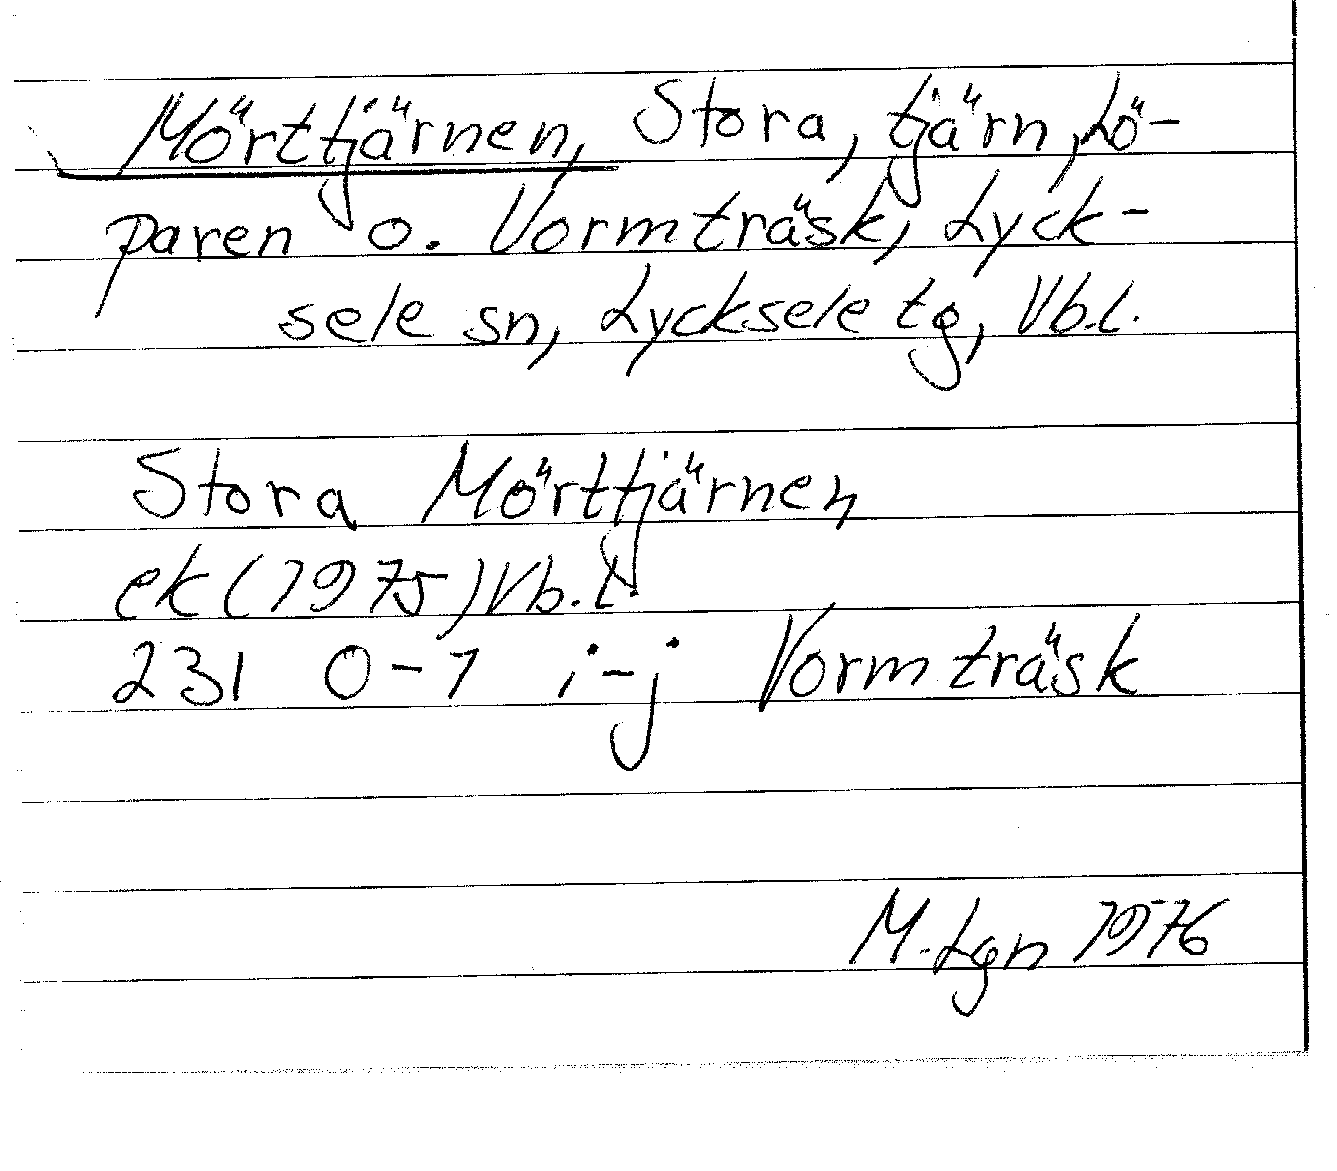 Mörttjärnen, Stora, tjärn, Lö-
paren o. Vormträsk, Lyck-
sele sn, Lycksele tg, Vb.l.
Stora Mörttjärnen
ek (1975) Vb. l.
231 0-1 i-j Vormträsk
M-Lgn 1976